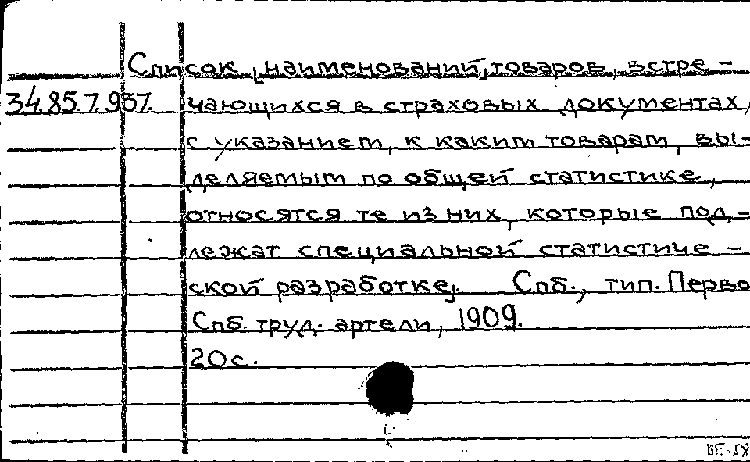 Список наименований товаров, встре-
34.85.7.937. чающихся в страховых документах,
с указанием, к каким товарам, вы-
деляемым по общей статистике,
относятся те из них, которые под-
лежат специальной статистиче-
ской разработке. Спб., тип. Перво
Спб. труд. артели, 1909.
20 с.